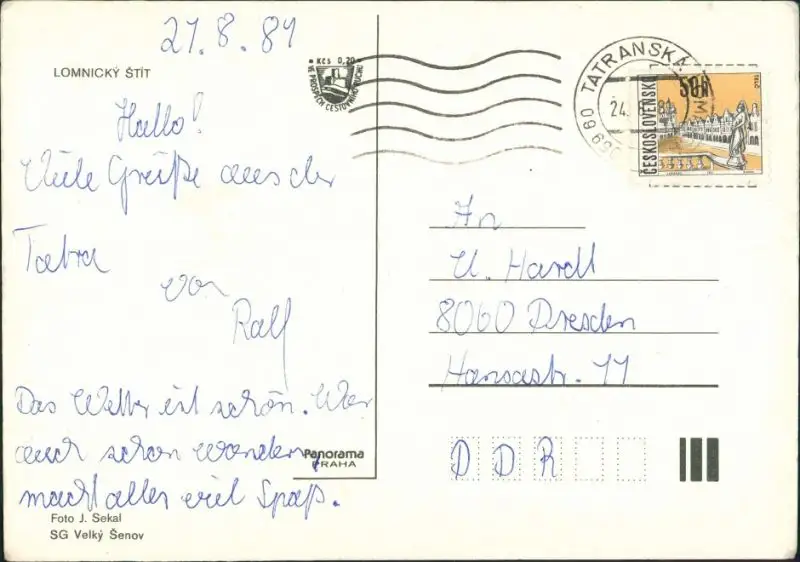 21.8.81
LOMNICKÝ ŠTÍT
Hallo!
Viele Grüße aus der
Tatra
von
Ralf
Das Wetter ist schön. War
auch schon wandern,
macht alles viel Spaß.
Foto J. Sekal
SG Velký Šenov
Panorama
PRAHA
Kčs 0,20
VE PROSPĚCH CESTOVNÍHO RUCHU
059 60 TATRANSKÁ
24.
ČESKOSLOVENSKO
50h
An
U. Hardt
8060 Dresden
Hansastr. 11
DDR